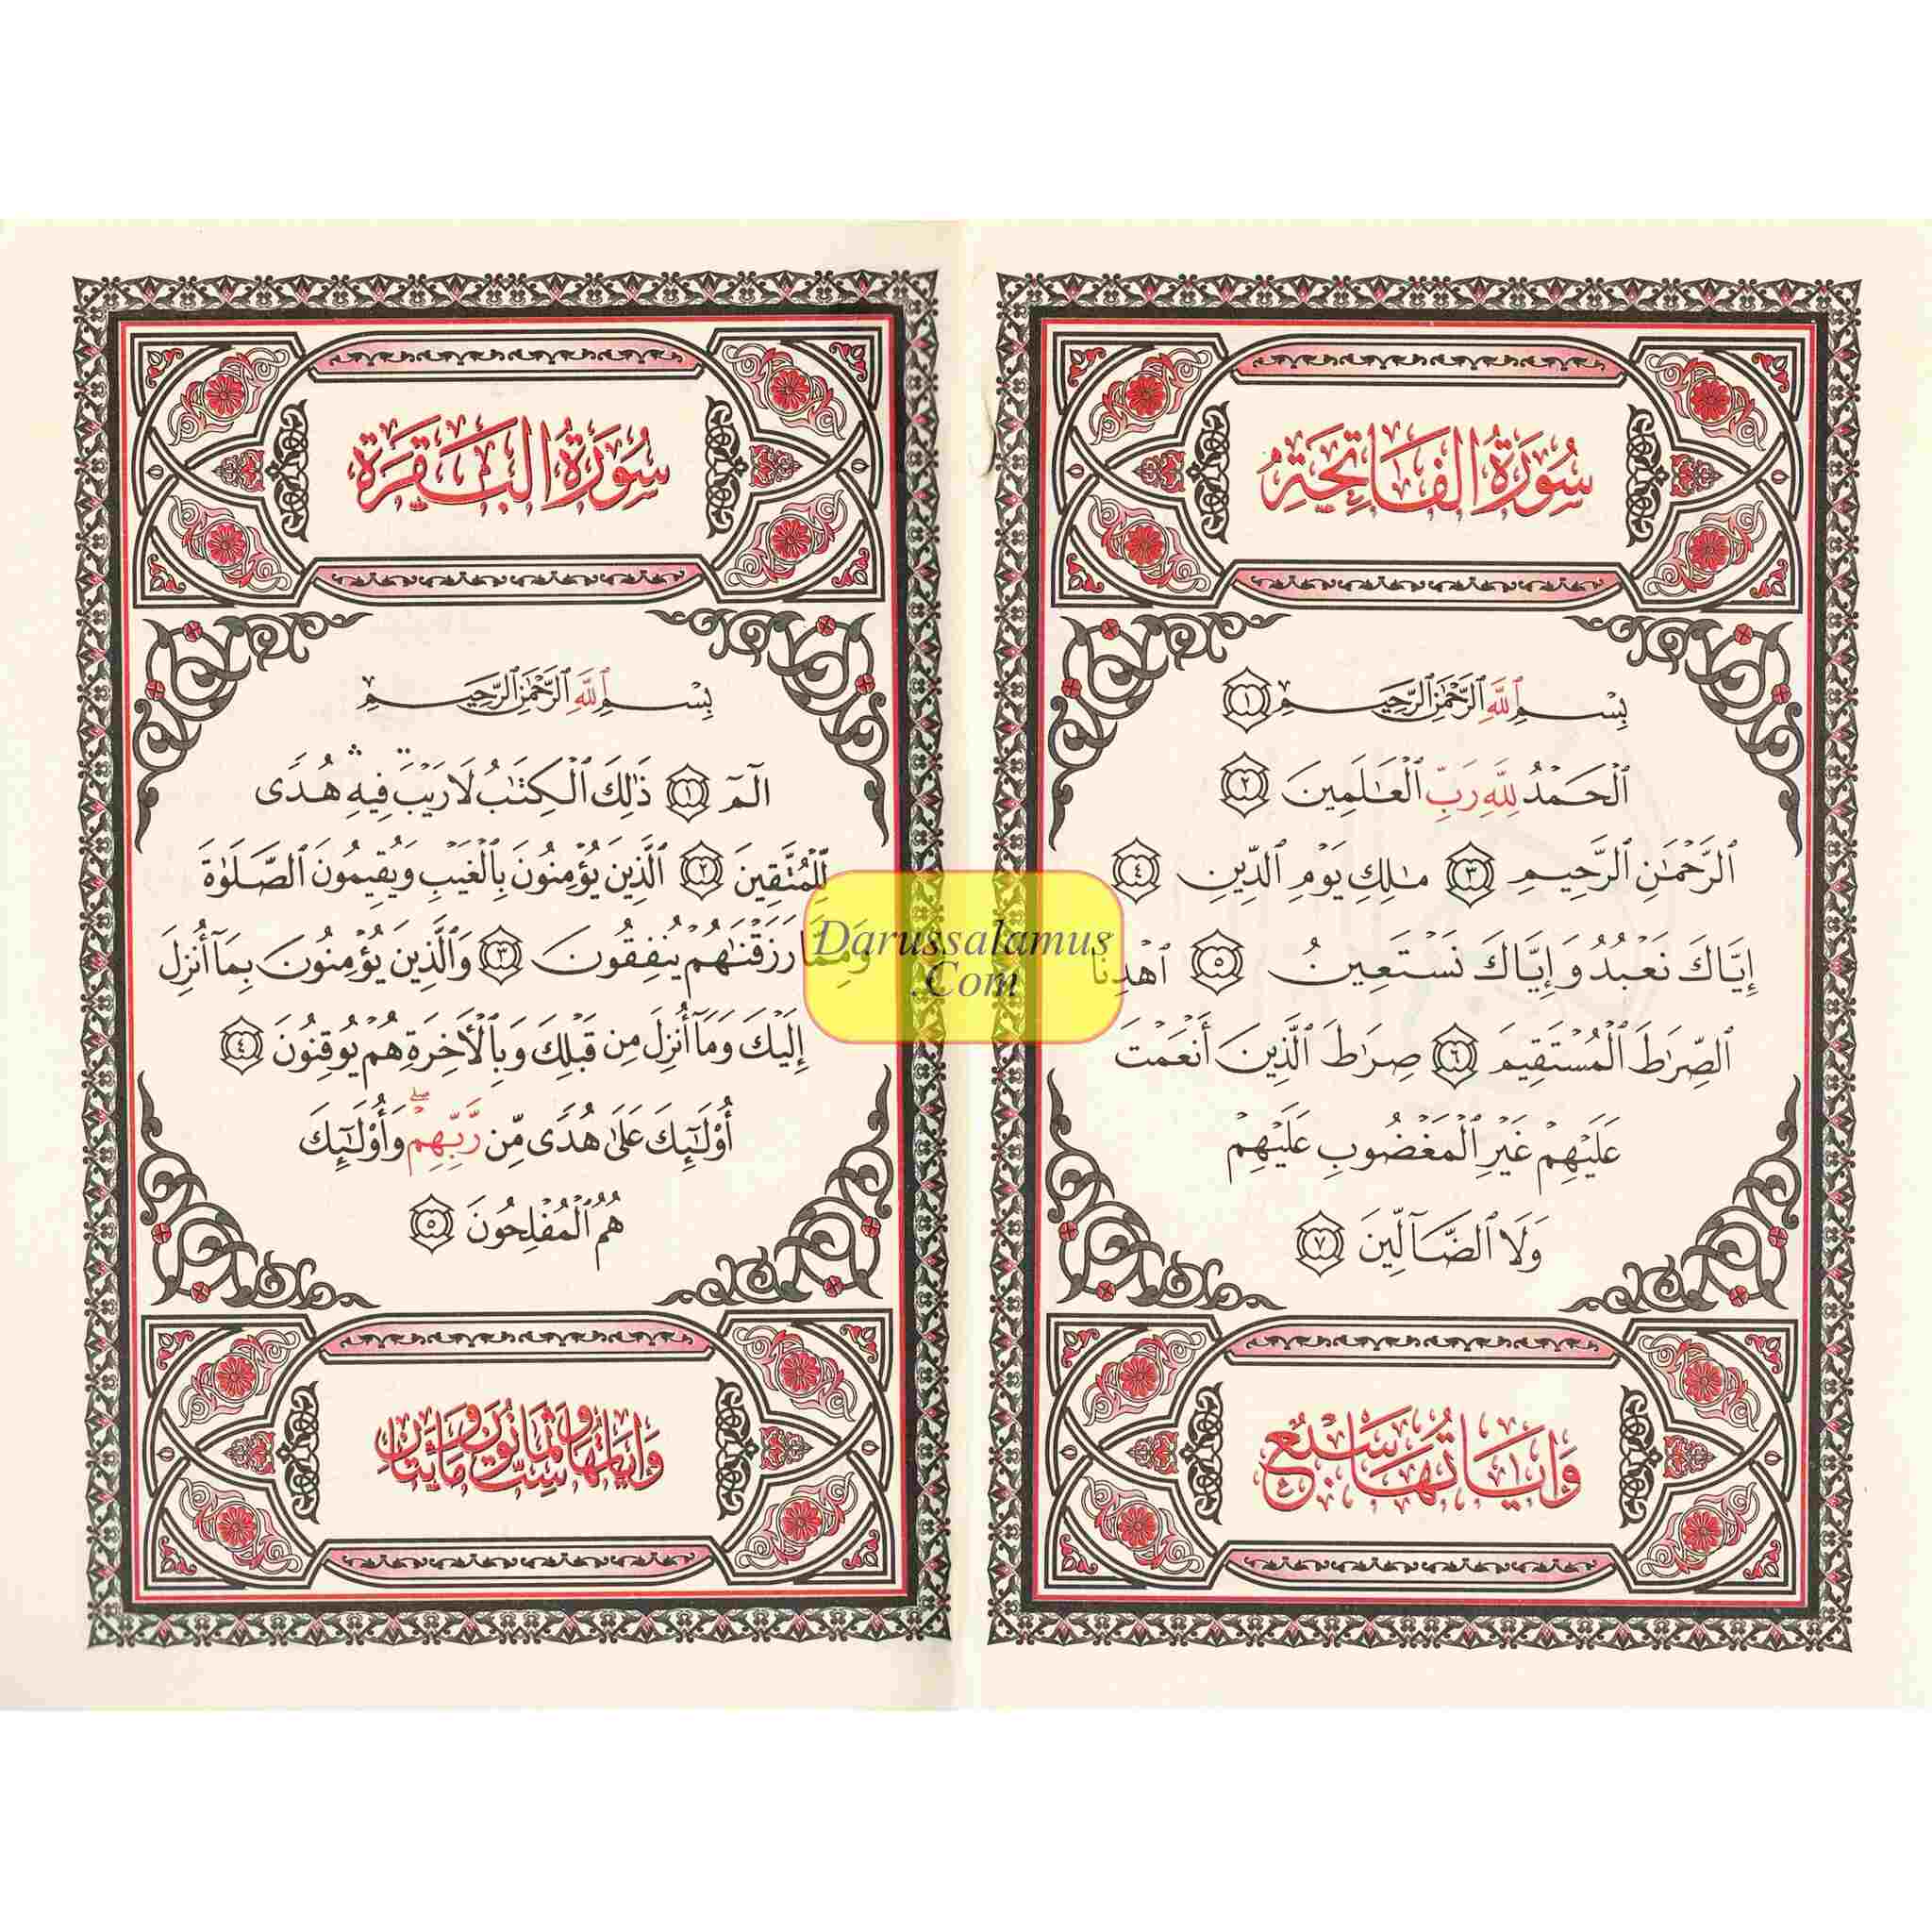 سُورَةُ الْفَاتِحَةِ
بِسْمِ ٱللَّهِ ٱلرَّحْمَٰنِ ٱلرَّحِيمِ ١
ٱلْحَمْدُ لِلَّهِ رَبِّ ٱلْعَٰلَمِينَ ٢
ٱلرَّحْمَٰنِ ٱلرَّحِيمِ ٣ مَٰلِكِ يَوْمِ ٱلدِّينِ ٤
إِيَّاكَ نَعْبُدُ وَإِيَّاكَ نَسْتَعِينُ ٥ ٱهْدِنَا
ٱلصِّرَٰطَ ٱلْمُسْتَقِيمَ ٦ صِرَٰطَ ٱلَّذِينَ أَنْعَمْتَ
عَلَيْهِمْ غَيْرِ ٱلْمَغْضُوبِ عَلَيْهِمْ
وَلَا ٱلضَّآلِّينَ ٧
وَآيَاتُهَا سَبْعٌ
سُورَةُ الْبَقَرَةِ
بِسْمِ ٱللَّهِ ٱلرَّحْمَٰنِ ٱلرَّحِيمِ
الٓمٓ ١ ذَٰلِكَ ٱلْكِتَٰبُ لَا رَيْبَ ۛ فِيهِ ۛ هُدًى
لِّلْمُتَّقِينَ ٢ ٱلَّذِينَ يُؤْمِنُونَ بِٱلْغَيْبِ وَيُقِيمُونَ ٱلصَّلَوٰةَ
وَمِمَّا رَزَقْنَٰهُمْ يُنفِقُونَ ٣ وَٱلَّذِينَ يُؤْمِنُونَ بِمَآ أُنزِلَ
إِلَيْكَ وَمَآ أُنزِلَ مِن قَبْلِكَ وَبِٱلْأَخِرَةِ هُمْ يُوقِنُونَ ٤
أُو۟لَٰٓئِكَ عَلَىٰ هُدًى مِّن رَّبِّهِمْ ۖ وَأُو۟لَٰٓئِكَ
هُمُ ٱلْمُفْلِحُونَ ٥
وَآيَاتُهَا سِتٌّ وَثَمَانُونَ وَمَائِتَانِ
Darussalamus
.Com